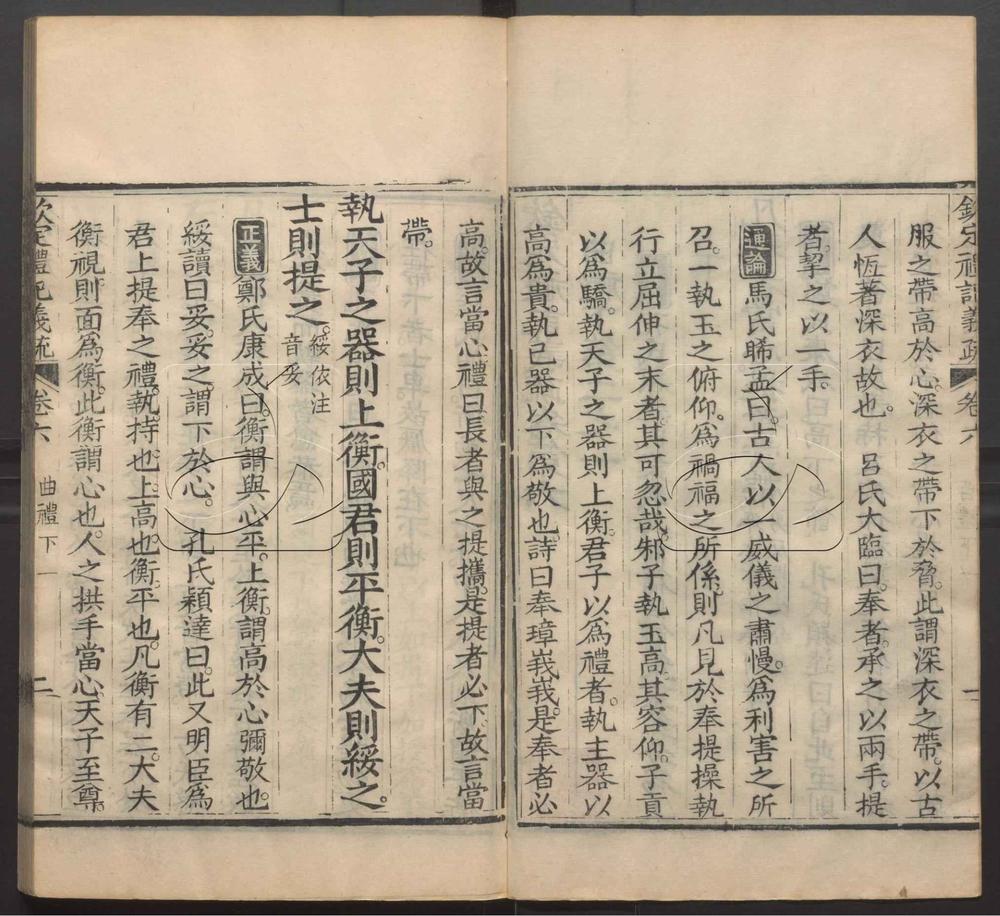 欽定禮記義疏 卷六
服之帶高於心。深衣之帶下於脅。此謂深衣之帶。以古
人恆著深衣故也。 呂氏大臨曰。奉者承之以兩手。提
者。挈之以一手。
通論 馬氏睎孟曰。古人以一威儀之肅慢。為利害之所
召。一執玉之俯仰。為禍福之所係。則凡見於奉提操執
行立屈伸之末者。其可忽哉。邾子執玉高。其容仰。子貢
以為驕。執天子之器則上衡。君子以為禮者。執主器以
高為貴。執己器以下為敬也。詩曰奉璋峩峩。是奉者必
高。故言當心。禮曰長者與之提攜。是提者必下。故言當
帶。
執天子之器則上衡。國君則平衡。大夫則綏之。
士則提之。綏依注
音妥
正義 鄭氏康成曰。衡謂與心平。上衡謂高於心。彌敬也。
綏讀曰妥。妥之。謂下於心。 孔氏穎達曰。此又明臣為
君上提奉之禮。執持也。上高也。衡。平也。凡衡有二。大夫
衡視則面為衡。此衡謂心也。人之拱手當心。天子至尊。
欽定禮記義疏 卷六 曲禮下 二